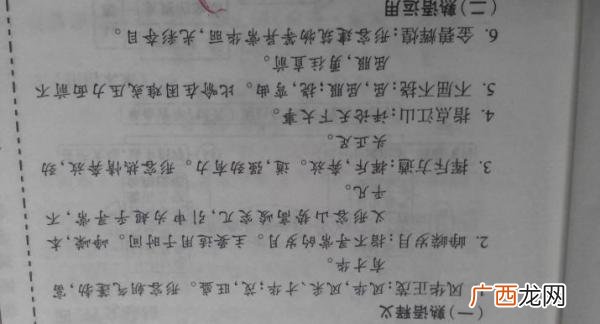 (一)熟语释义
1. 风华正茂:风华,风采、才华;茂,旺盛。形容朝气蓬勃,富
有才华。
2. 峥嵘岁月:指不寻常的岁月。主要适用于时间。峥嵘,本
义形容山势高峻突兀,引申为超乎寻常,不
平凡。
3. 挥斥方遒:挥斥,奔放。遒,强劲有力。形容热情奔放,劲
头正足。
4. 指点江山:评论天下大事。
5. 不屈不挠:屈,屈服;挠,弯曲。比喻在困难或压力面前不
屈服,勇往直前。
6. 金碧辉煌:形容建筑物等异常华丽,光彩夺目。
(二)熟语运用
广西龙网